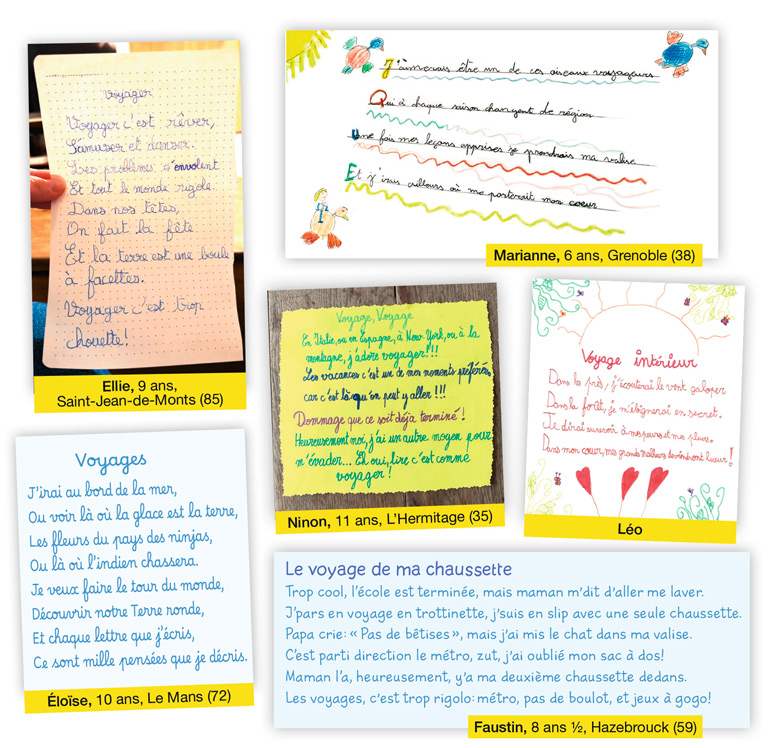 Voyager
Voyager c'est rêver,
S'amuser et danser.
Les problèmes s'envolent
Et tout le monde rigole.
Dans nos têtes,
On fait la fête
Et la terre est une boule
à facettes.
Voyager c'est trop
chouette!
Ellie, 9 ans,
Saint-Jean-de-Monts (85)
J'aimerais être un de ces oiseaux voyageurs
Qui à chaque saison changent de région
Une fois mes leçons apprises je prendrais ma valise
Et j'irais ailleurs où me porterait mon coeur
Marianne, 6 ans, Grenoble (38)
Voyage, Voyage
En Italie, ou en Espagne, à New York, ou à la
montagne, j'adore voyager!!!
Les vacances c'est un de mes moments préférés,
car c'est là qu'on peut y aller!!!
Dommage que ce soit déja terminé!
Heureusement moi, j'ai un autre moyen pour
m'évader... Eh oui, lire c'est comme
voyager!
Ninon, 11 ans, L'Hermitage (35)
Voyage intérieur
Dans les près, j'écouterai le vent galoper
Dans la forêt, je m'éloignerai en secret.
Je dirai au revoir à mes peurs et mes pleurs.
Dans mon cœur, mes grands malheurs deviendront lueur!
Léo
Voyages
J'irai au bord de la mer,
Ou voir là où la glace est la terre,
Les fleurs du pays des ninjas,
Ou là où l'indien chassera.
Je veux faire le tour du monde,
Découvrir notre Terre ronde,
Et chaque lettre que j'écris,
Ce sont mille pensées que je décris.
Éloïse, 10 ans, Le Mans (72)
Le voyage de ma chaussette
Trop cool, l'école est terminée, mais maman m'dit d'aller me laver.
J'pars en voyage en trottinette, j'suis en slip avec une seule chaussette.
Papa crie: « Pas de bêtises », mais j'ai mis le chat dans ma valise.
C'est parti direction le métro, zut, j'ai oublié mon sac à dos!
Maman l'a, heureusement, y'a ma deuxième chaussette dedans.
Les voyages, c'est trop rigolo: métro, pas de boulot, et jeux à gogo!
Faustin, 8 ans ½, Hazebrouck (59)